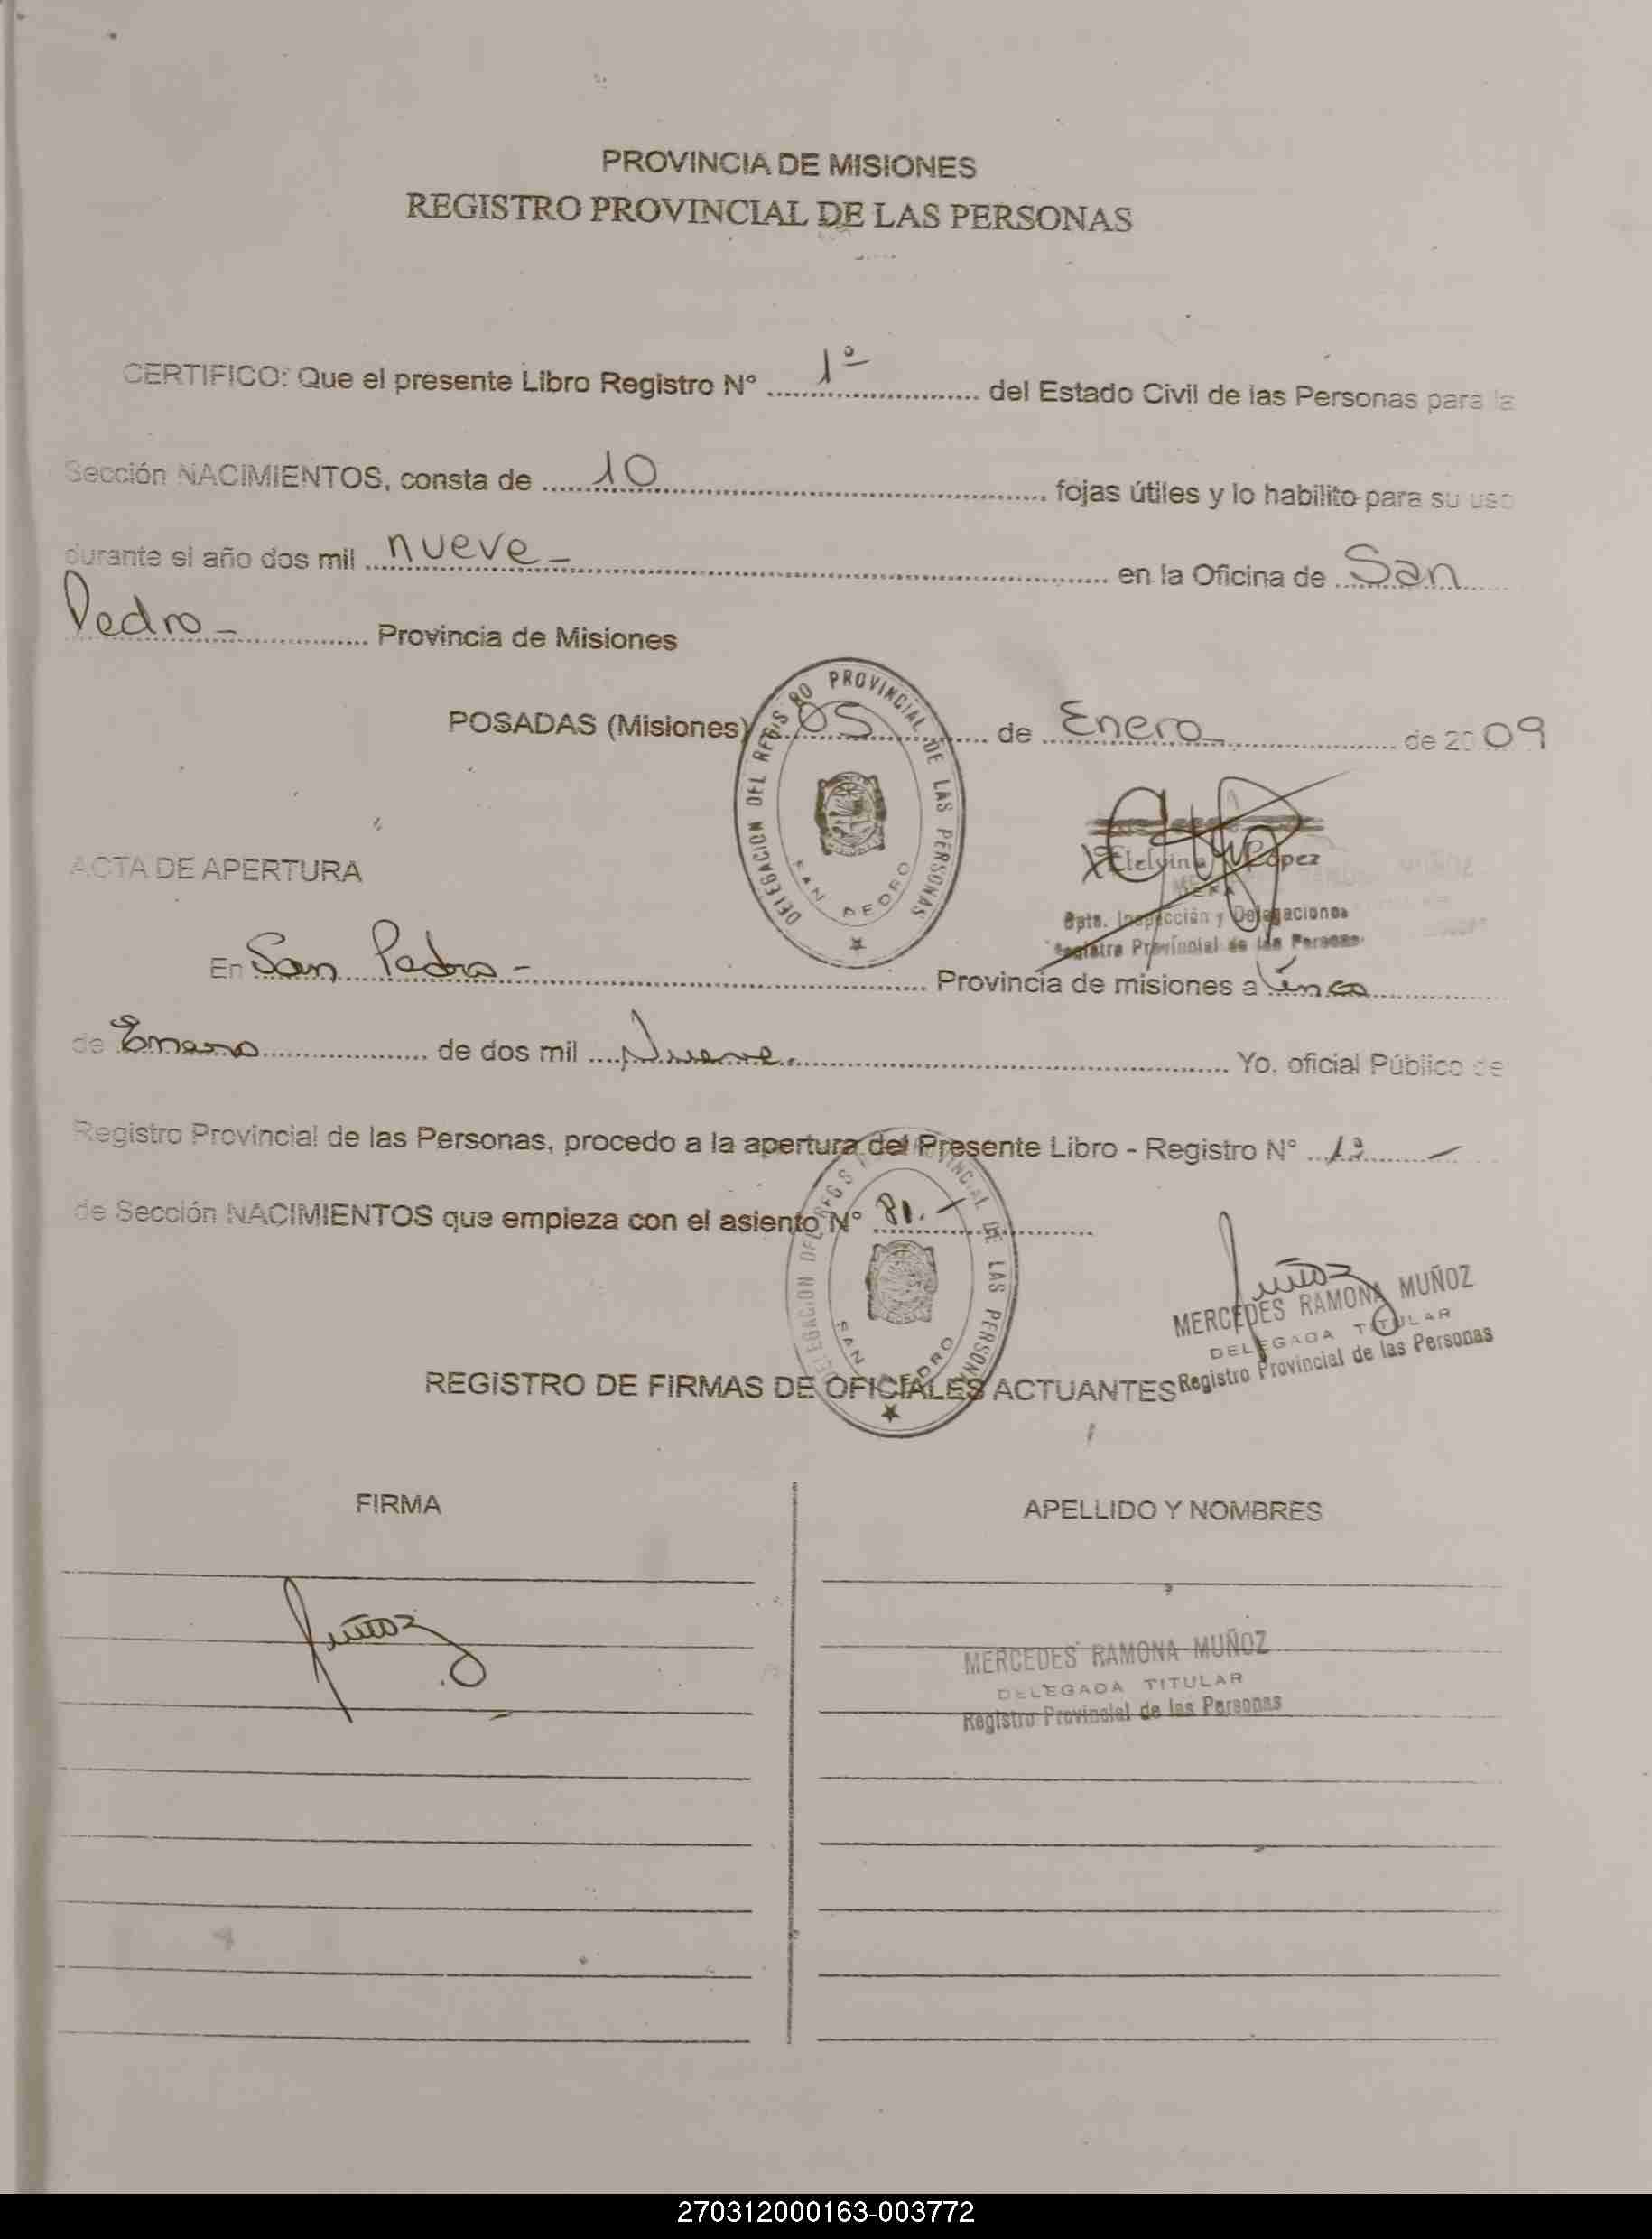 PROVINCIA DE MISIONES
REGISTRO PROVINCIAL DE LAS PERSONAS
CERTIFICO: Que el presente Libro Registro N° 1º del Estado Civil de las Personas para la
Sección NACIMIENTOS, consta de 10 fojas útiles y lo habilito para su uso
durante el año dos mil nueve - en la Oficina de San
Pedro - Provincia de Misiones
POSADAS (Misiones) 05 de Enero de 2009
DELEGACION DEL REGISTRO PROVINCIAL DE LAS PERSONAS
SAN PEDRO
López
JEFA
Dpto. Inspección y Delegaciones
Registro Provincial de las Personas
ACTA DE APERTURA
En San Pedro - Provincia de misiones a cinco
de Enero de dos mil Nueve. Yo, oficial Público de
Registro Provincial de las Personas, procedo a la apertura del Presente Libro - Registro N°
de Sección NACIMIENTOS que empieza con el asiento N° 81. -
DELEGACION DEL REGISTRO PROVINCIAL DE LAS PERSONAS
SAN PEDRO
Muñoz
MERCEDES RAMONA MUÑOZ
DELEGADA TITULAR
Registro Provincial de las Personas
REGISTRO DE FIRMAS DE OFICIALES ACTUANTES
FIRMA APELLIDO Y NOMBRES
Muñoz
MERCEDES RAMONA MUÑOZ
DELEGADA TITULAR
Registro Provincial de las Personas
270312000163-003772